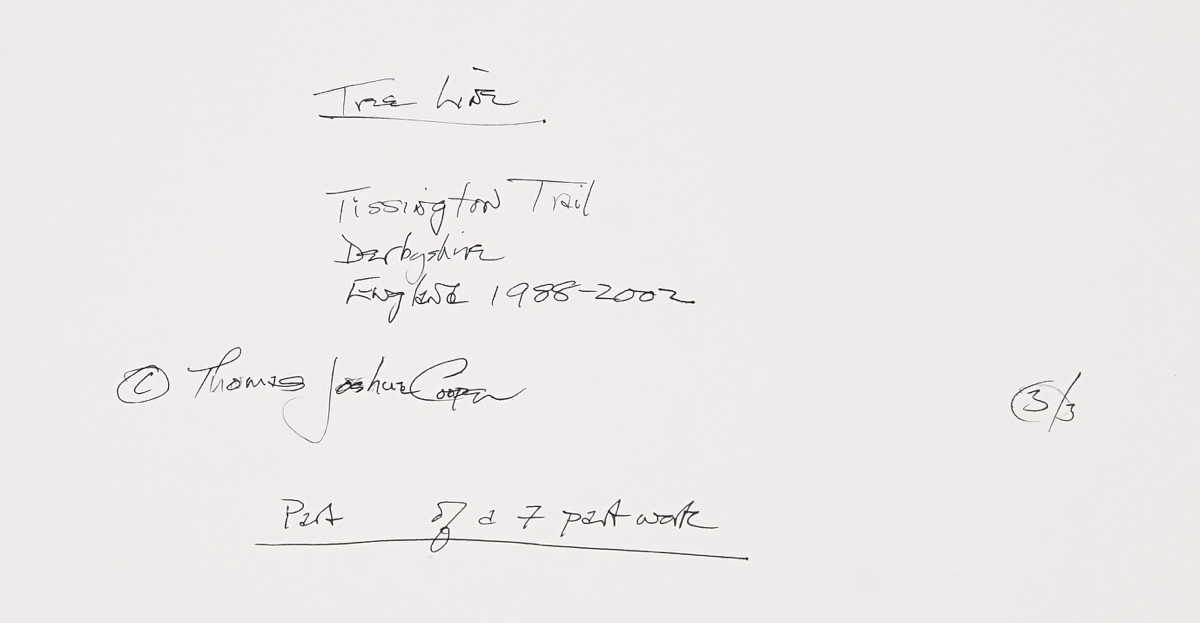 Tree Line
Tissington Trail
Derbyshire
England 1988-2002
© Thomas Joshua Cooper
3/3
Part of a 7 part work